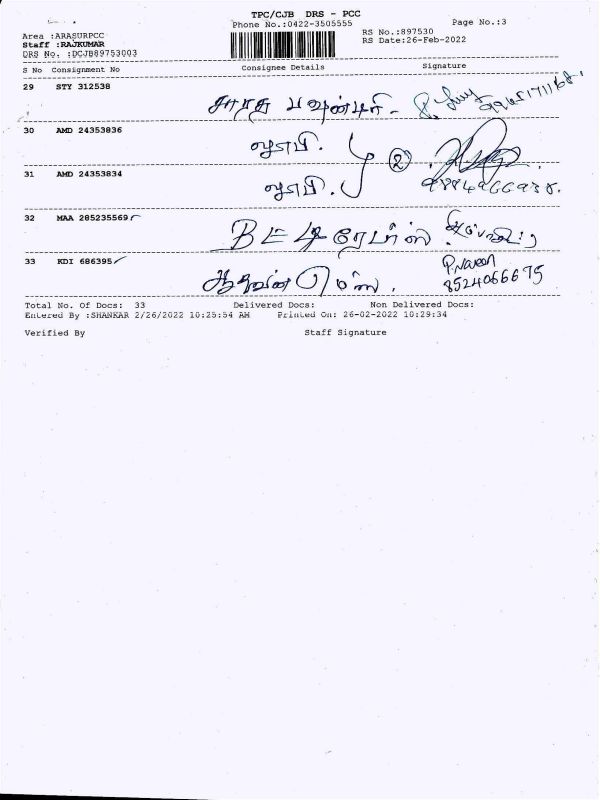 TPC/CJB DRS - PCC
Phone No.:0422-3505555 Page No.:3
Area :ARASURPCC RS No.:897530
Staff :RAJKUMAR RS Date:26-Feb-2022
DRS No. :DCJB89753003
S No Consignment No Consignee Details Signature
29 STY 312538
சாரதா
30 AMD 24353836
லூபி. 2
31 AMD 24353834
லூபி.
32 MAA 285235569
33 KDI 686395
P. Naveen
8524066675
Total No. Of Docs: 33 Delivered Docs: Non Delivered Docs:
Entered By :SHANKAR 2/26/2022 10:25:54 AM Printed On: 26-02-2022 10:29:34
Verified By Staff Signature